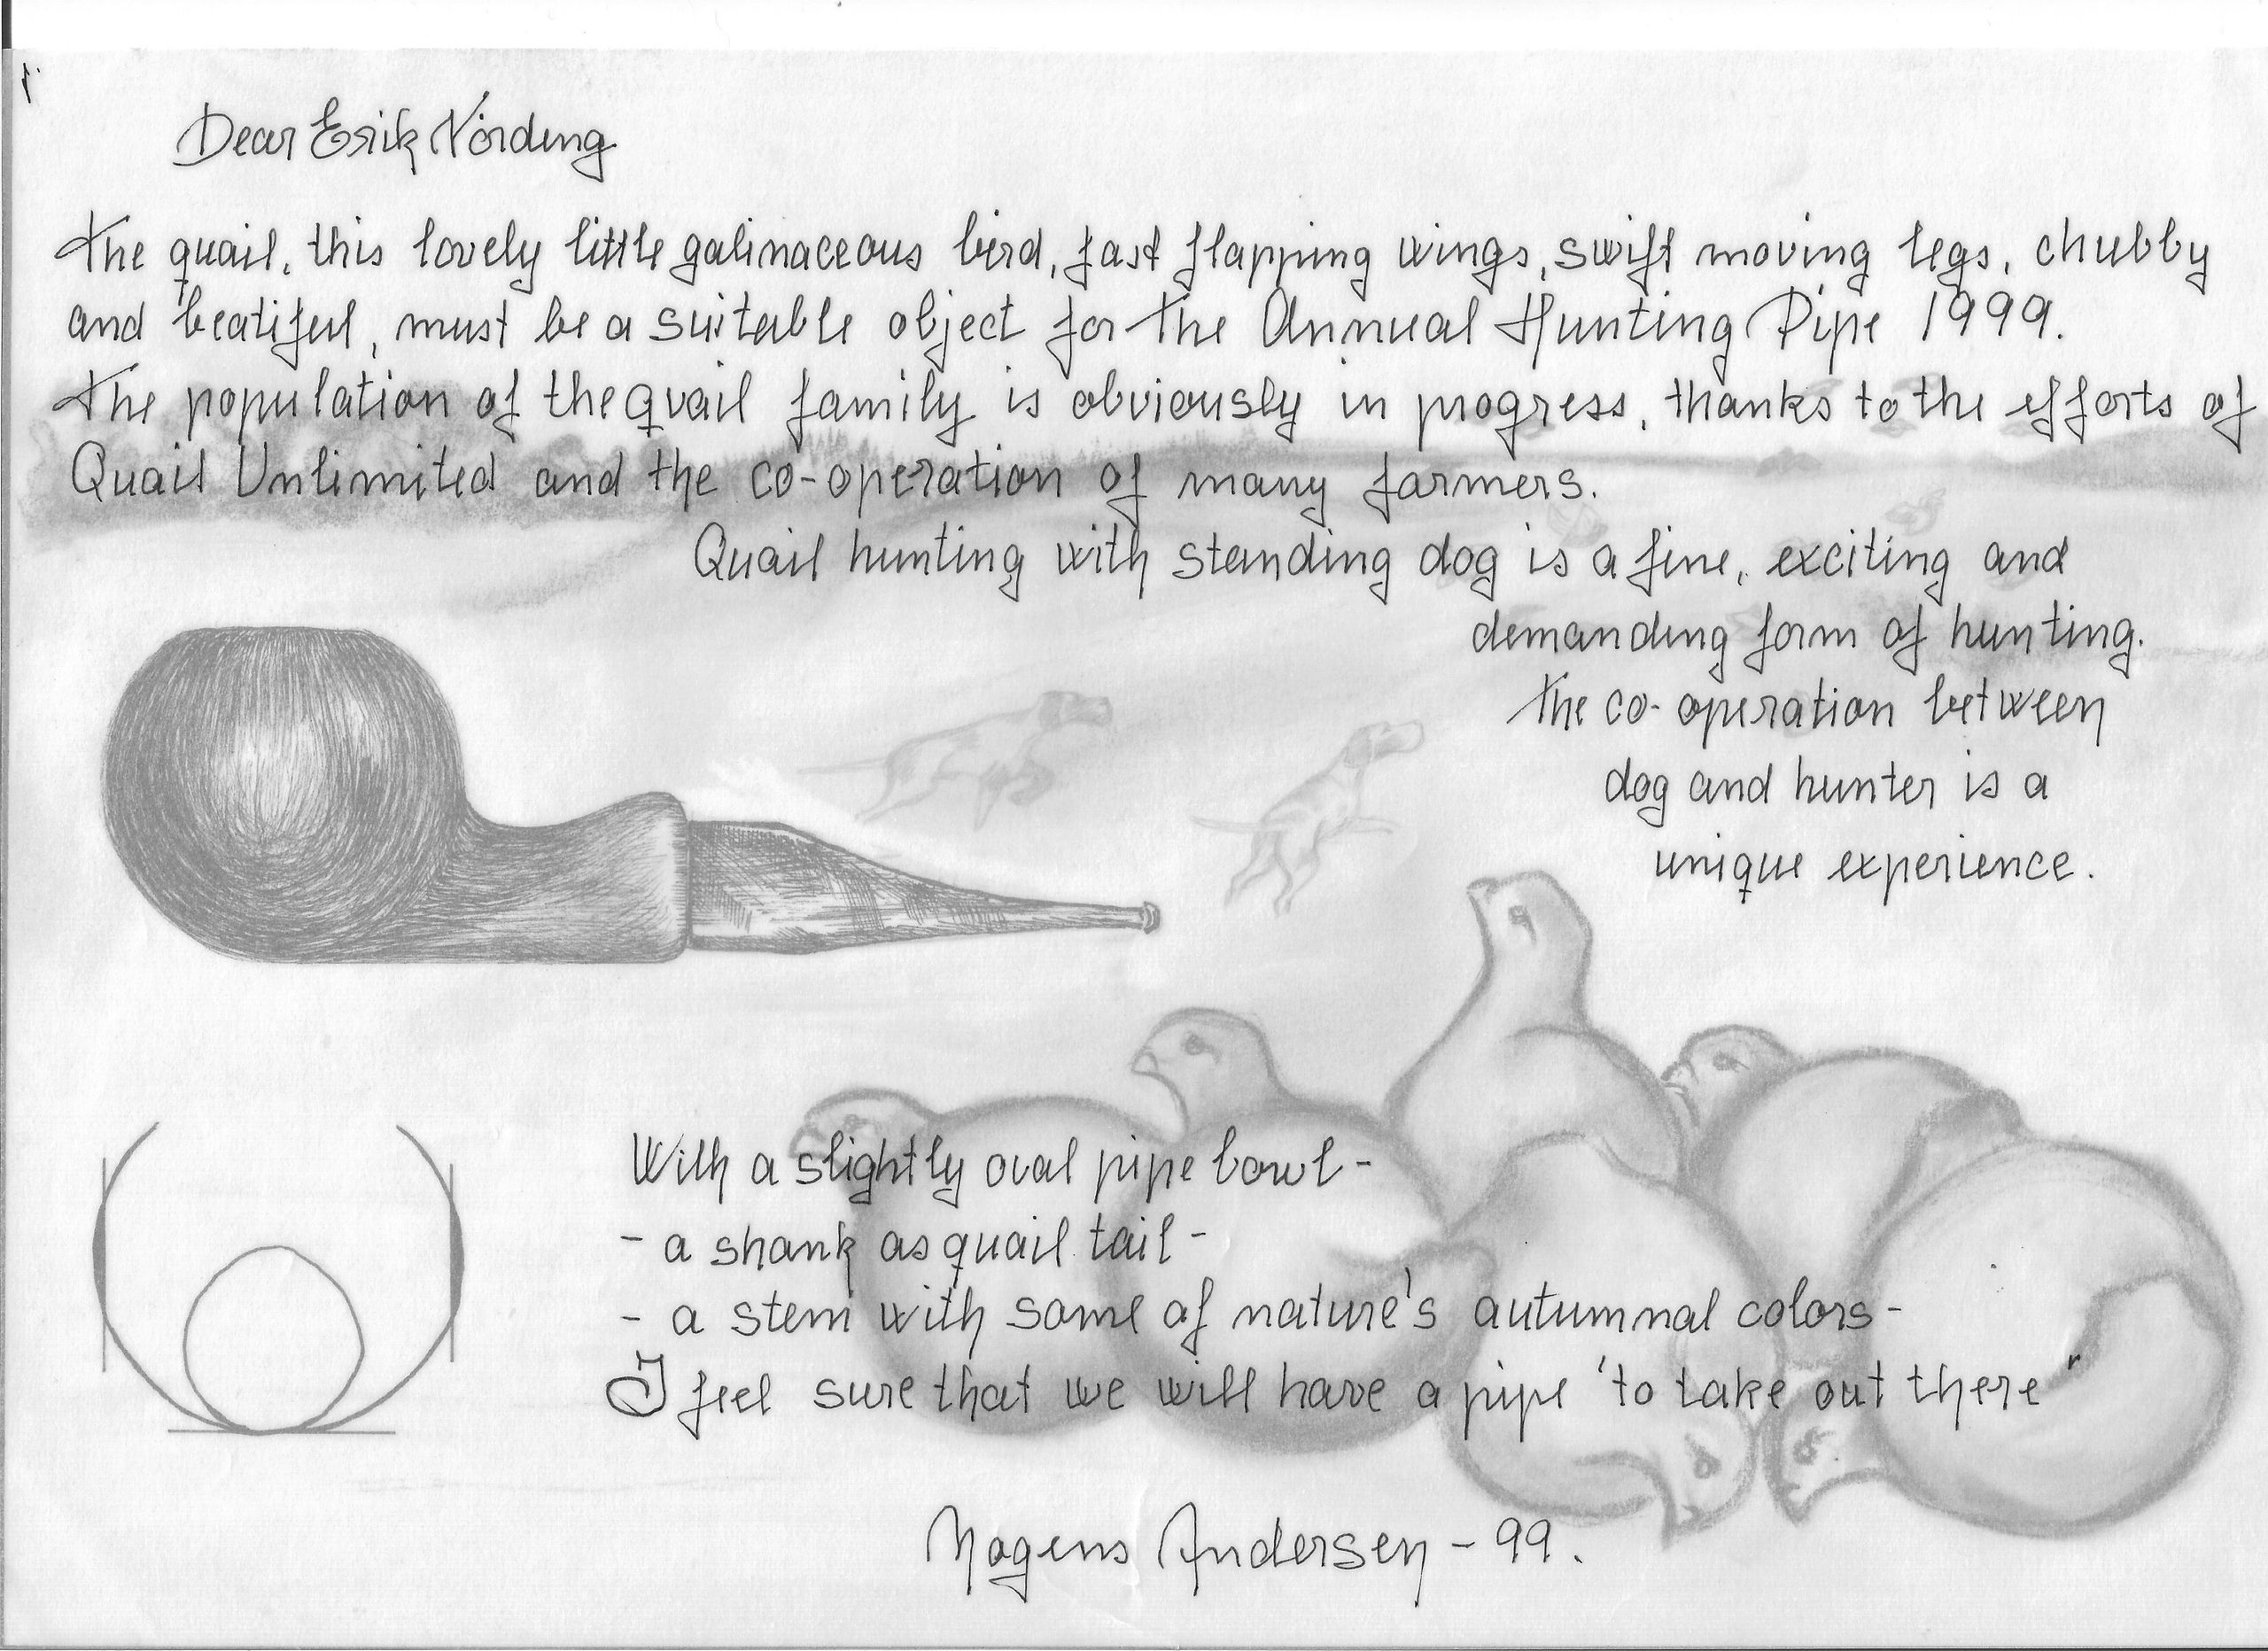 Dear Erik Nørding
The quail, this lovely little galinaceous bird, fast flapping wings, swift moving legs, chubby
and beatiful, must be a suitable object for the Annual Hunting Pipe 1999.
The population of the quail family is obviously in progress, thanks to the efforts of
Quail Unlimited and the co-operation of many farmers.
Quail hunting with standing dog is a fine, exciting and
demanding form of hunting.
The co-operation between
dog and hunter is a
unique experience.
With a slightly oval pipe bowl -
- a shank as quail tail -
- a stem with some of nature's autumnal colors -
I feel sure that we will have a pipe 'to take out there"
Mogens Andersen - 99.